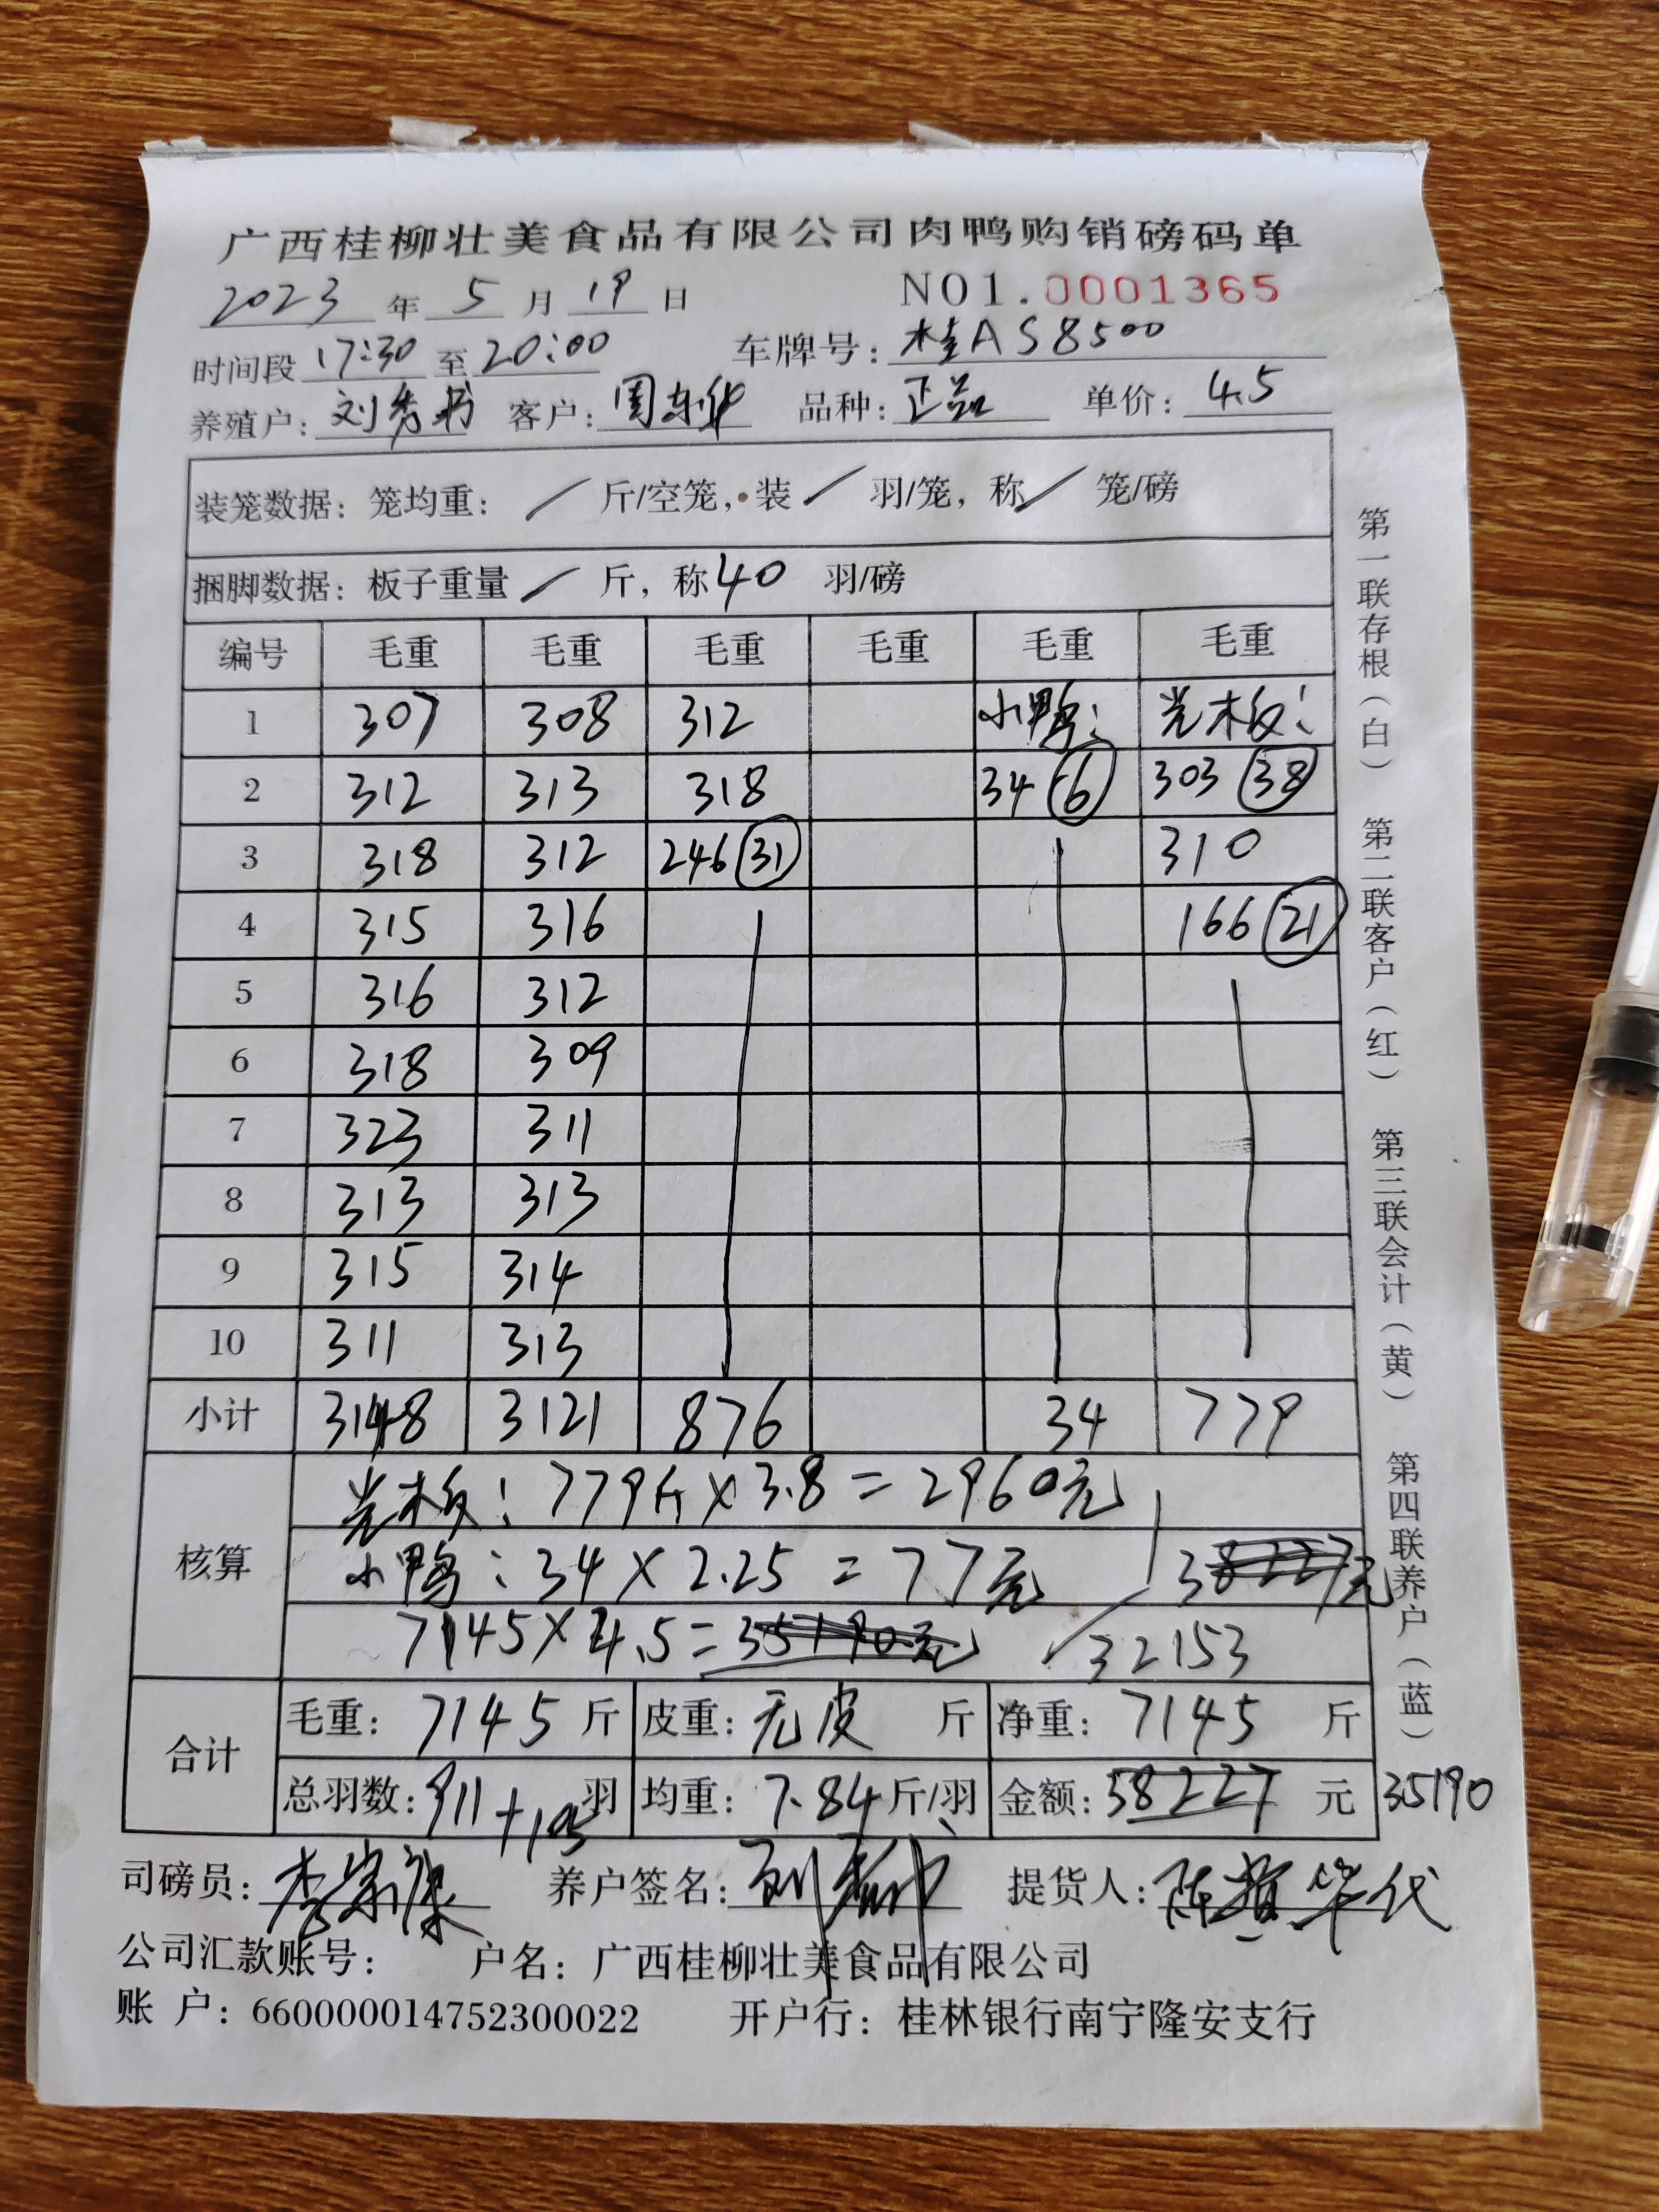 广西桂柳壮美食品有限公司肉鸭购销磅码单
2023 年 5 月 19 日 NO1.0001365
时间段 17:30 至 20:00 车牌号: 桂AS8500
养殖户: 刘秀 客户: 周东华 品种: 正品 单价: 4.5
装笼数据: 笼均重: / 斤/空笼, 装 / 羽/笼, 称 / 笼/磅
捆脚数据: 板子重量 / 斤, 称 40 羽/磅
编号 毛重 毛重 毛重 毛重 毛重 毛重
1 307 308 312 小鸭: 光板:
2 312 313 318 34 (6) 303 (38)
3 318 312 246 (31) 310
4 315 316 166 (21)
5 316 312
6 318 309
7 323 311
8 313 313
9 315 314
10 311 313
小计 3148 3121 876 34 779
核算
光板: 779斤×3.8=2960元
小鸭: 34×2.25=77元 38227元
7145×4.5=35190元 32153
合计
毛重: 7145 斤 皮重: 无皮 斤 净重: 7145 斤
总羽数: 911+105 羽 均重: 7.84 斤/羽 金额: 38227 元 35190
司磅员: 养户签名: 提货人: 代
公司汇款账号: 户名: 广西桂柳壮美食品有限公司
账 户: 660000014752300022 开户行: 桂林银行南宁隆安支行
第一联存根(白) 第二联客户(红) 第三联会计(黄) 第四联养户(蓝)